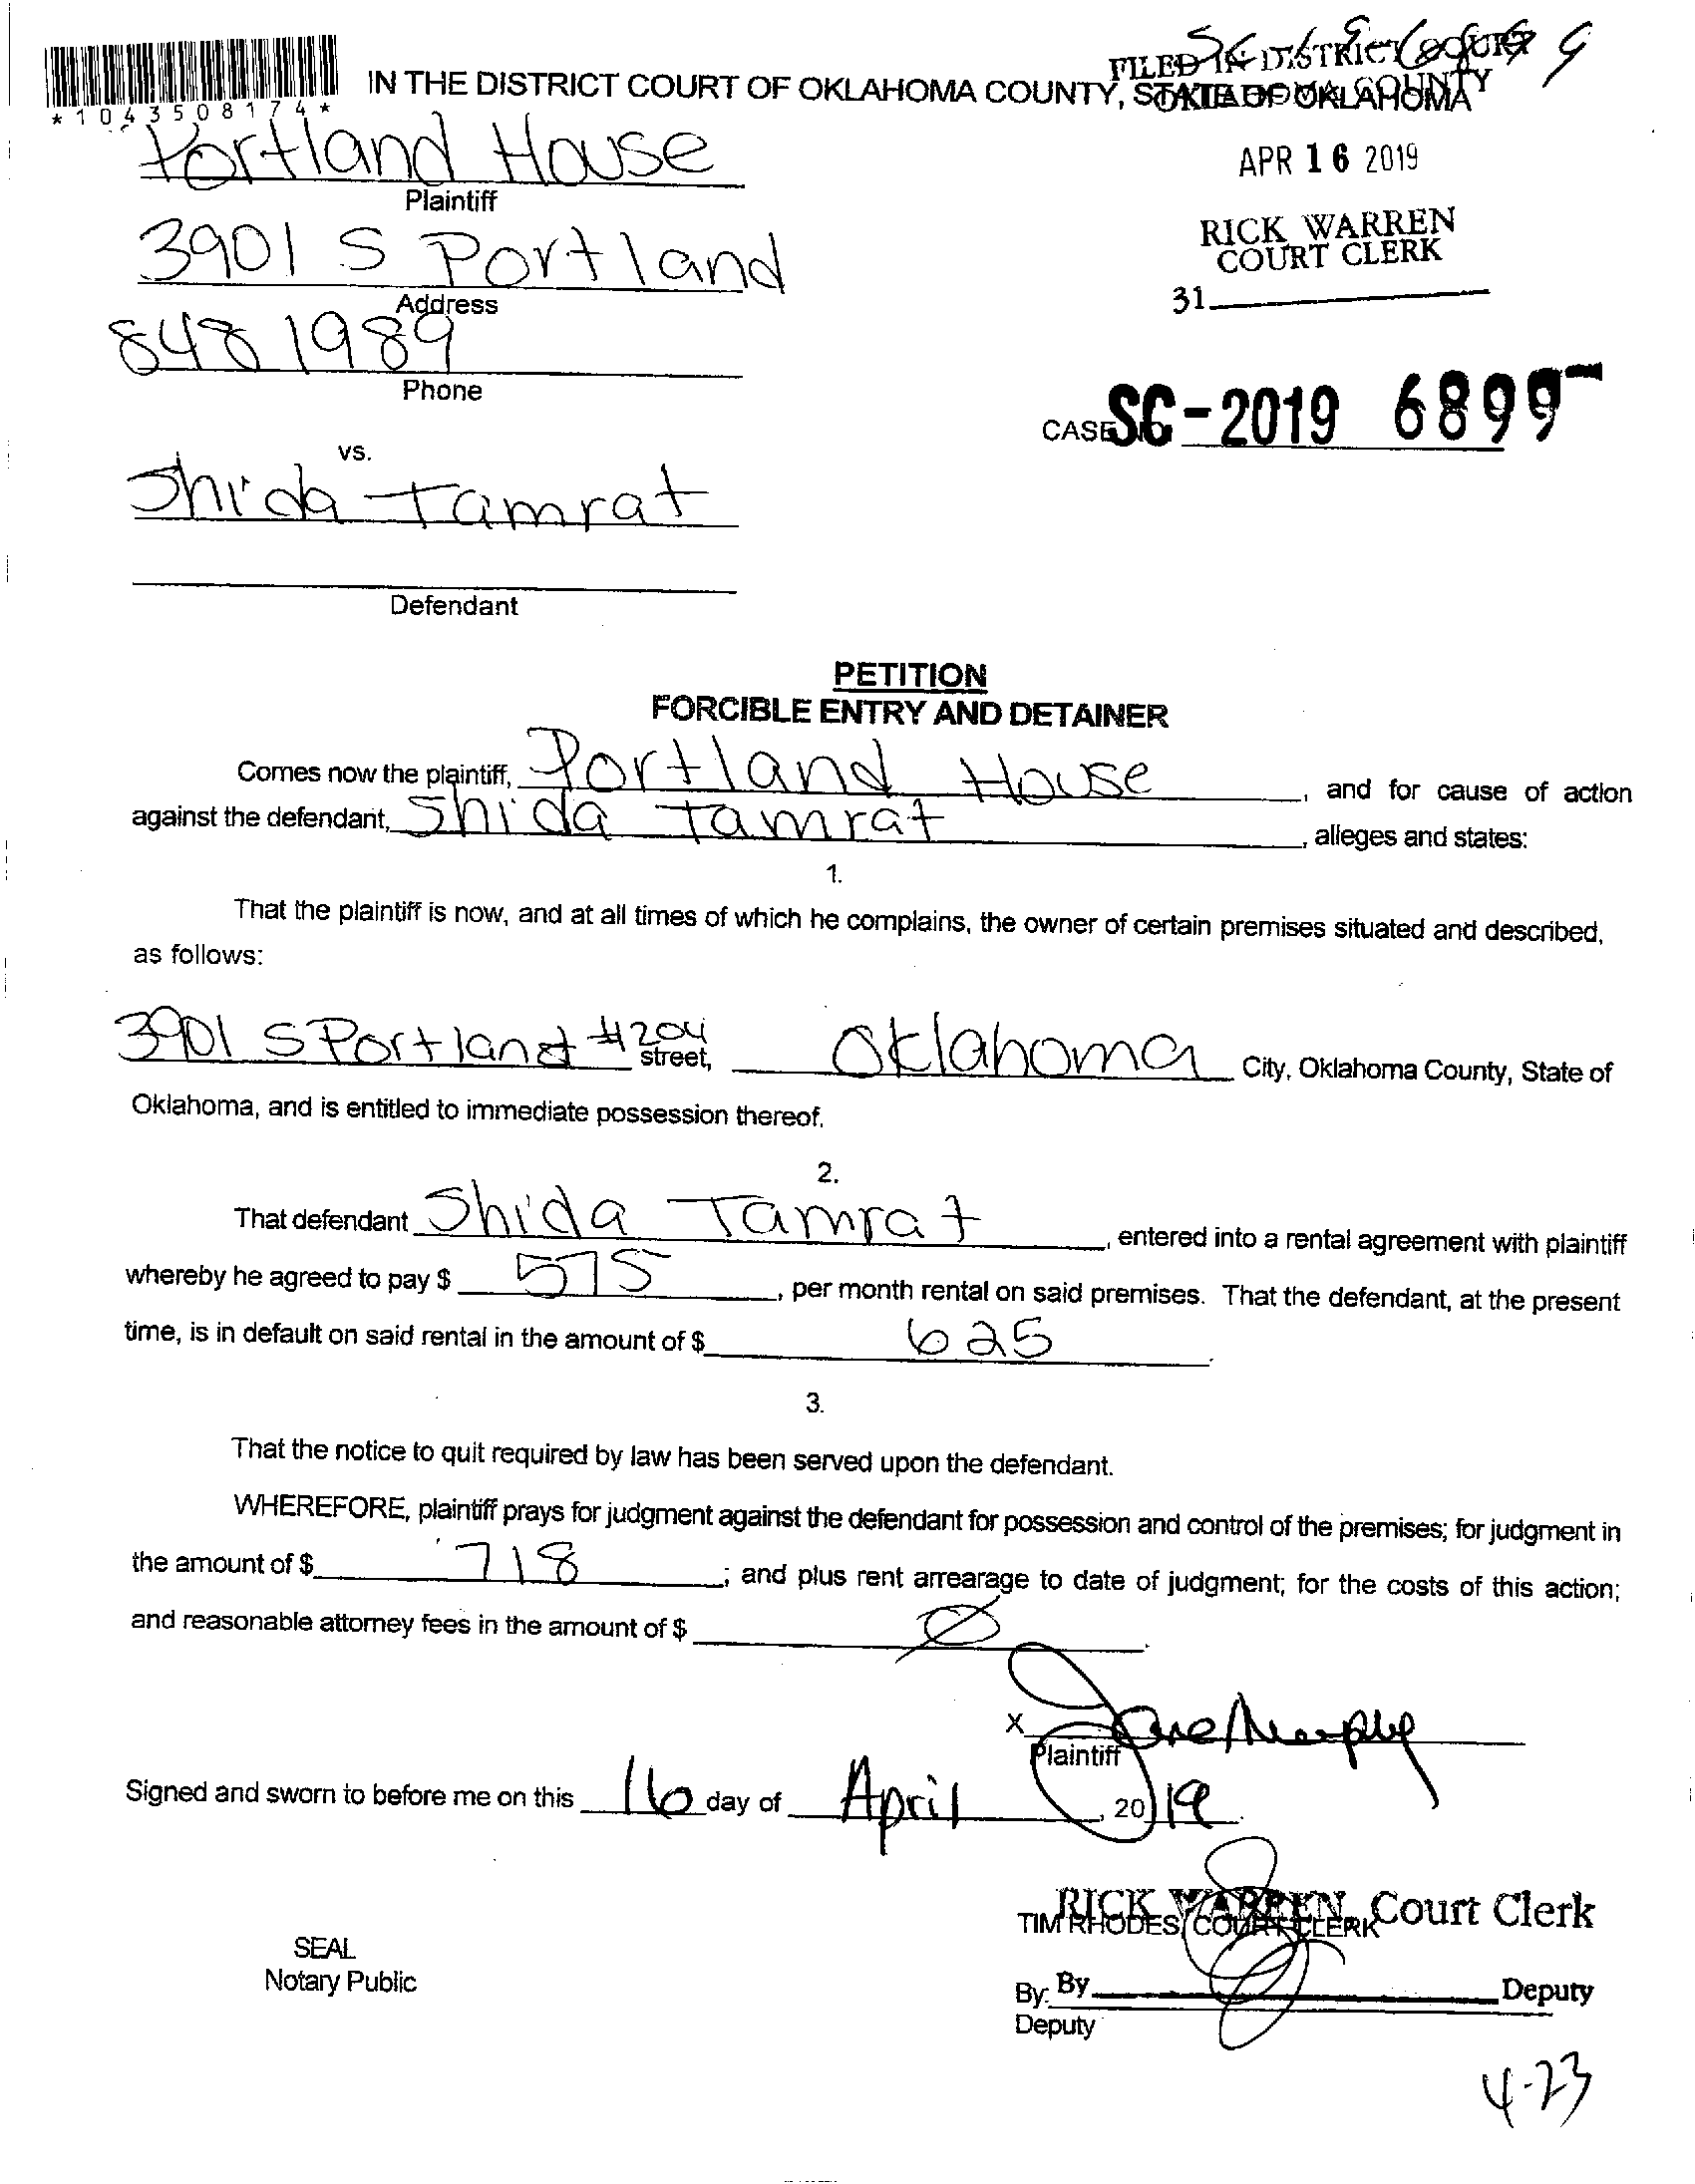 SC 19 6899
FILED IN DISTRICT COURT
IN THE DISTRICT COURT OF OKLAHOMA COUNTY, STATE OF OKLAHOMA
OKLAHOMA COUNTY
*1043508174*
Portland House
Plaintiff
APR 16 2019
3901 S Portland
Address
RICK WARREN
COURT CLERK
31
848 1989
Phone
CASE NO. SC-2019 6899
vs.
Shida Tamrat
Defendant
PETITION
FORCIBLE ENTRY AND DETAINER
Comes now the plaintiff, Portland House, and for cause of action
against the defendant, Shida Tamrat, alleges and states:
1.
That the plaintiff is now, and at all times of which he complains, the owner of certain premises situated and described,
as follows:
3901 S Portland #204 street, Oklahoma City, Oklahoma County, State of
Oklahoma, and is entitled to immediate possession thereof.
2.
That defendant Shida Tamrat, entered into a rental agreement with plaintiff
whereby he agreed to pay $ 575, per month rental on said premises. That the defendant, at the present
time, is in default on said rental in the amount of $ 625.
3.
That the notice to quit required by law has been served upon the defendant.
WHEREFORE, plaintiff prays for judgment against the defendant for possession and control of the premises; for judgment in
the amount of $ 718; and plus rent arrearage to date of judgment; for the costs of this action;
and reasonable attorney fees in the amount of $ Ø.
X Jane Murphy
Plaintiff
Signed and sworn to before me on this 16 day of April, 2019.
RICK WARREN, Court Clerk
TIM RHODES, COURT CLERK
SEAL
Notary Public
By: By Deputy
Deputy
4-23